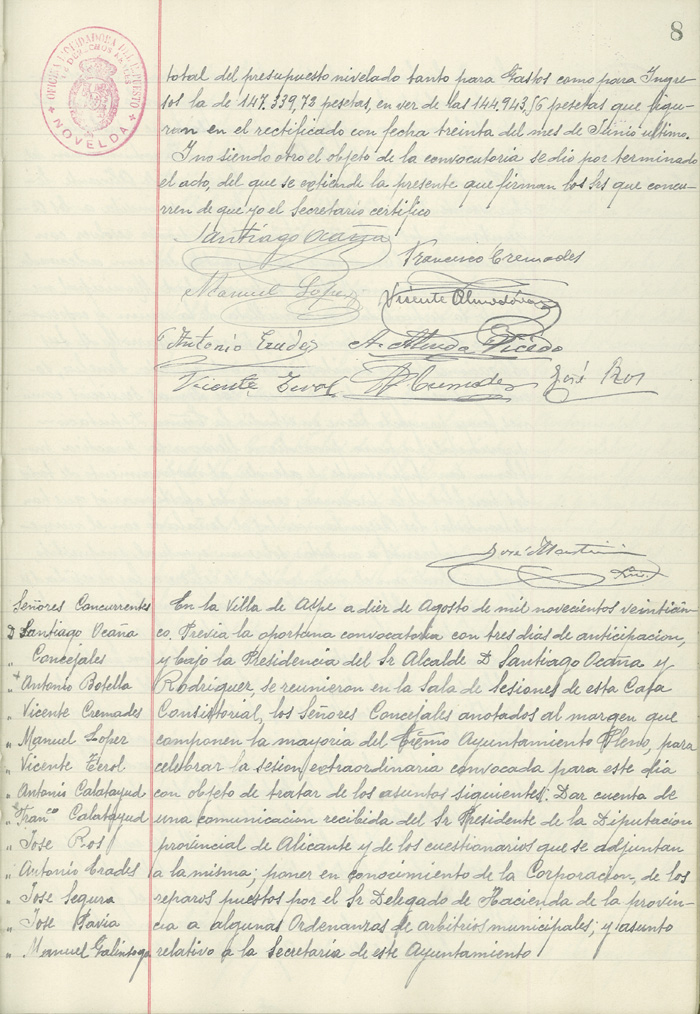 8
OFICINA LIQUIDADORA DEL IMPUESTO
DE DERECHOS REALES
NOVELDA
total del presupuesto nivelado tanto para Gastos como para Ingre-
sos la de 147.339,72 pesetas, en vez de las 144.943,56 pesetas que figu-
ran en el rectificado con fecha treinta del mes de Junio ultimo.
Y no siendo otro el objeto de la convocatoria se dió por terminado
el acto, del que se extiende la presente que firman los Srs que concu-
rren de que yo el Secretario certifico
Santiago Ocaña
Francisco Cremades
Manuel Lopez
Vicente Almodóvar
Antonio Erades
A. Almodóvar Vicedo
Vicente Zerol
Cremades
José Ros
José Martinez
Srio.
Señores Concurrentes
D Santiago Ocaña
Concejales
" Antonio Botella
" Vicente Cremades
" Manuel Lopez
" Vicente Zerol
" Antonio Calatayud
" Fran.co Calatayud
" Jose Ros
" Antonio Erades
" Jose Segura
" Jose Pavia
" Manuel Galinsoga
En la Villa de Aspe a diez de Agosto de mil novecientos veinticin-
co. Previa la oportuna convocatoria con tres dias de anticipacion,
y bajo la Presidencia del Sr Alcalde D Santiago Ocaña y
Rodriguez, se reunieron en la Sala de Sesiones de esta Casa
Consistorial, los Señores Concejales anotados al margen que
componen la mayoria del Exmo Ayuntamiento Pleno, para
celebrar la sesion extraordinaria convocada para este dia
con objeto de tratar de los asuntos siguientes: Dar cuenta de
una comunicacion recibida del Sr Presidente de la Diputacion
provincial de Alicante y de los cuestionarios que se adjuntan
a la misma; poner en conocimiento de la Corporacion, de los
reparos puestos por el Sr Delegado de Hacienda de la provin-
cia a algunas Ordenanzas de arbitrios municipales; y asunto
relativo a la Secretaria de este Ayuntamiento